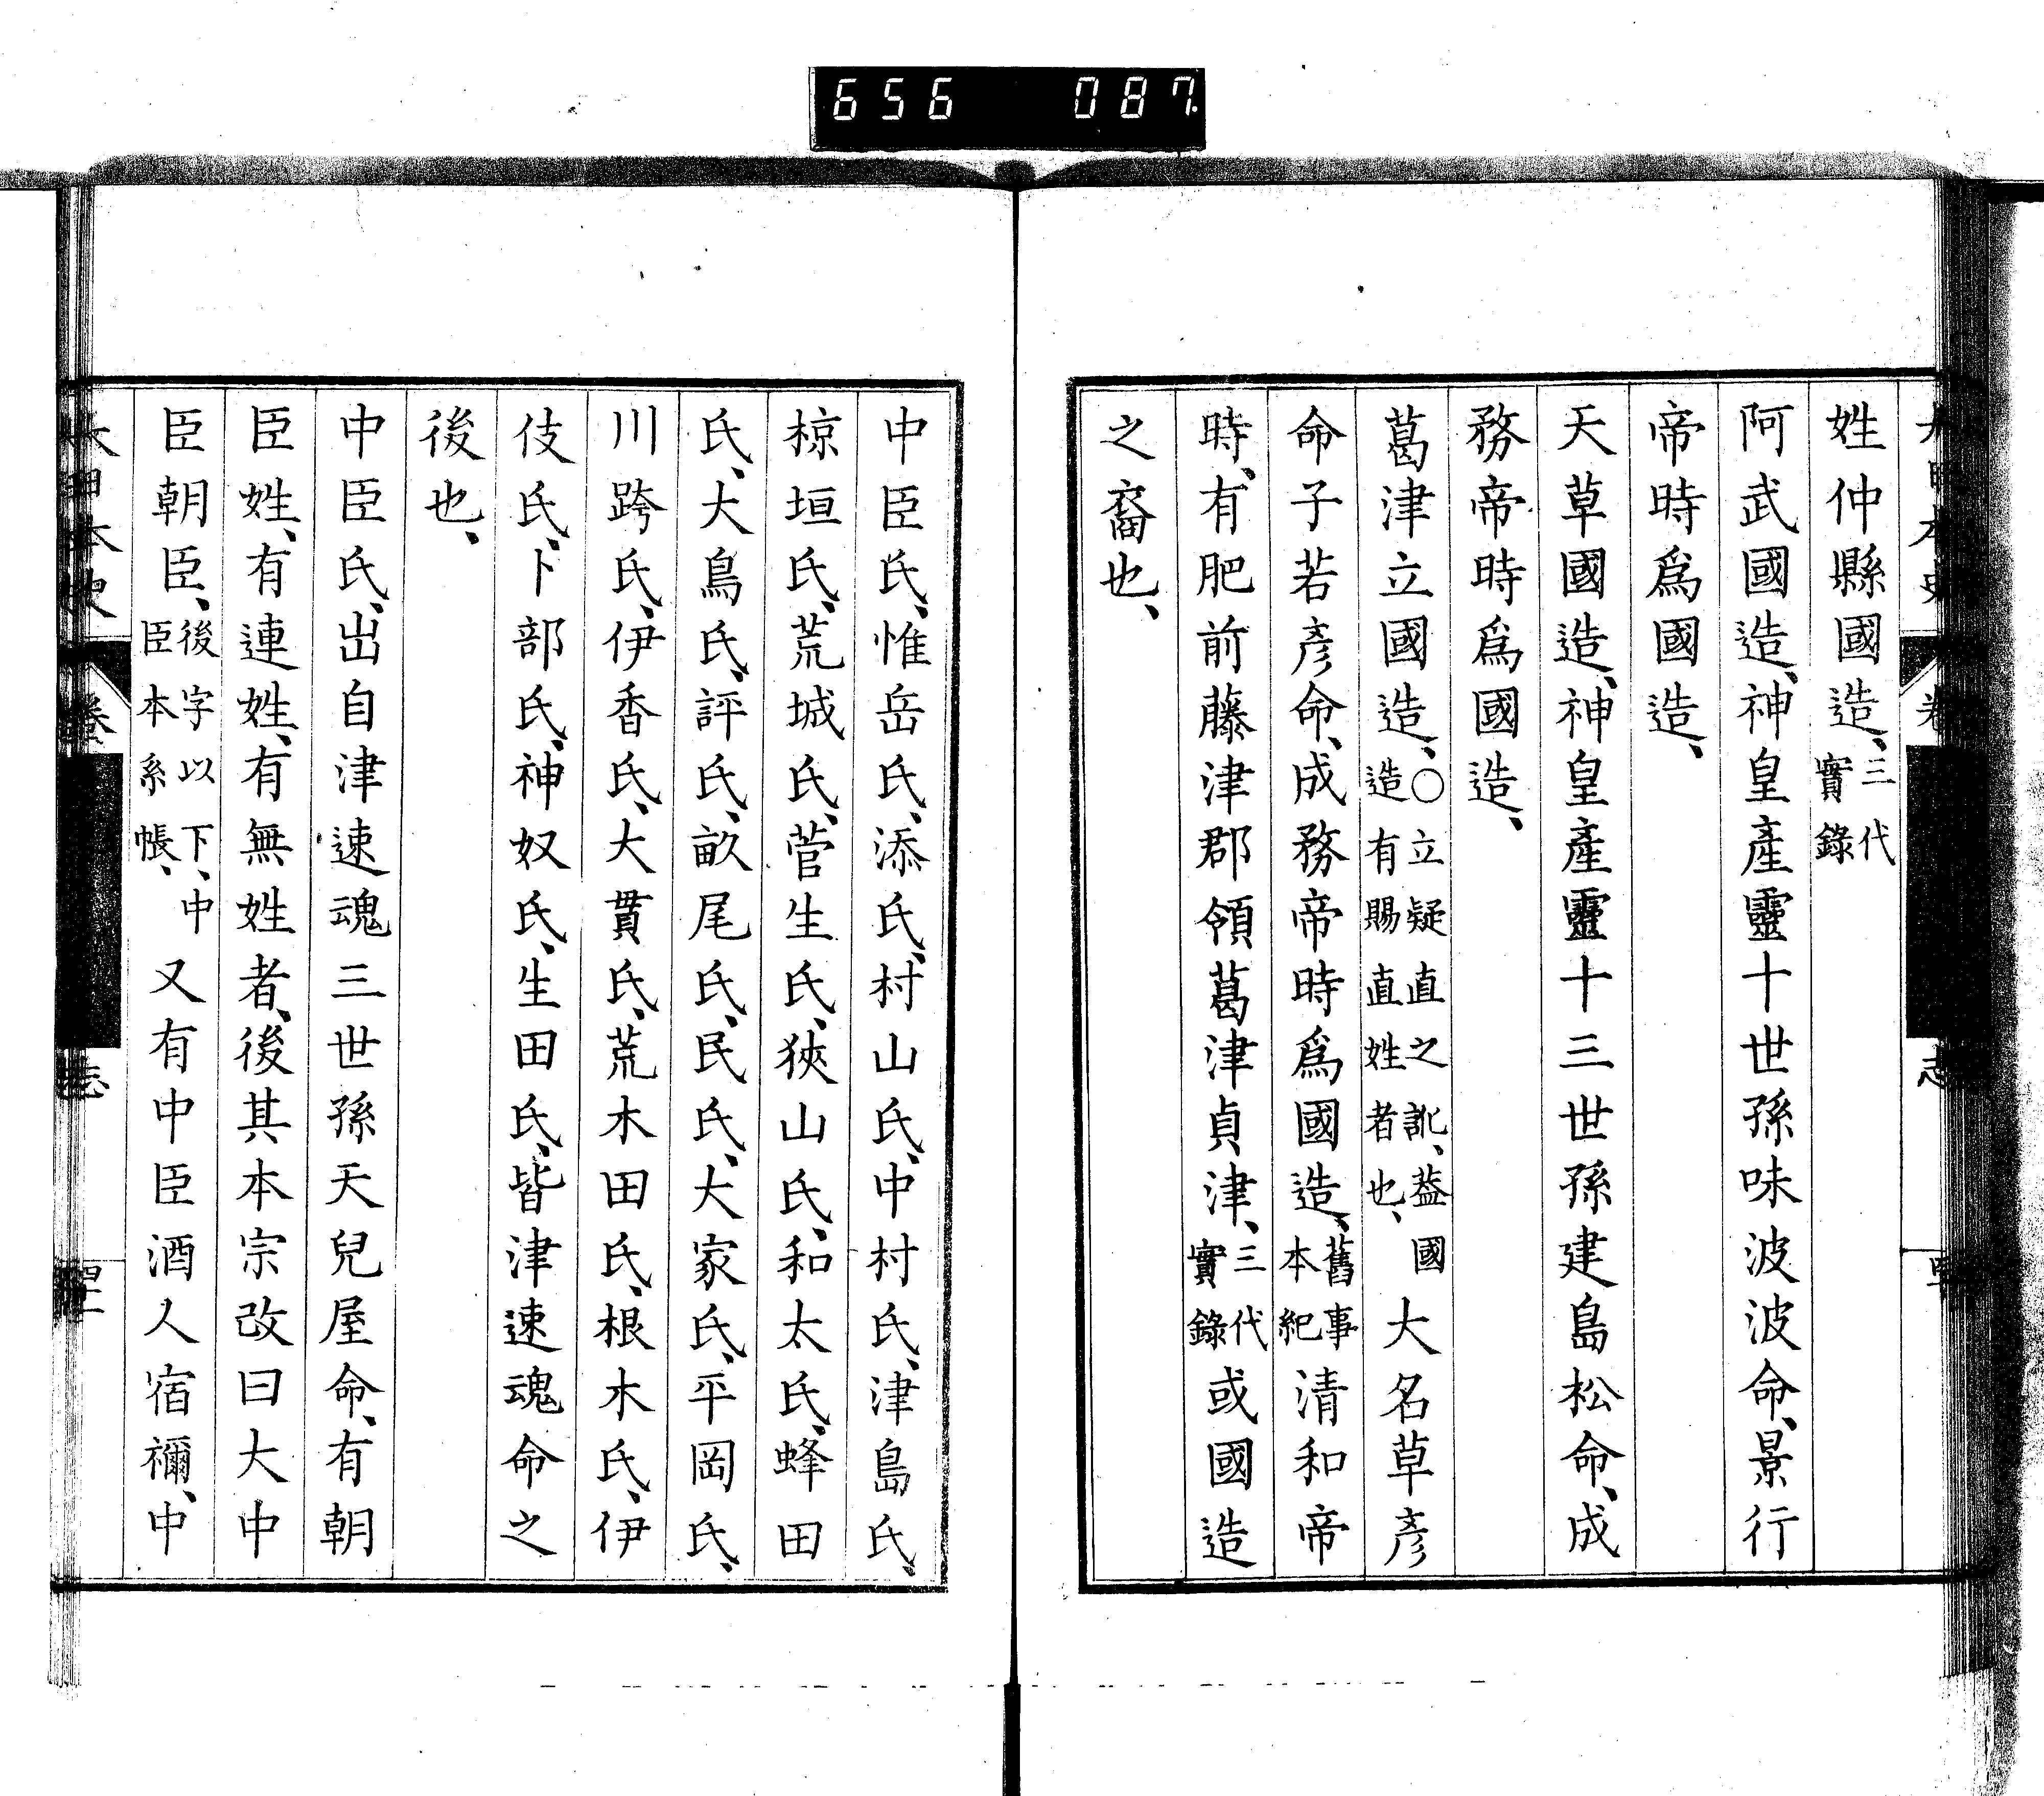 656 087
姓仲縣國造、三代實錄
阿武國造、神皇產靈十世孫味波波命、景行
帝時爲國造、
天草國造、神皇產靈十三世孫建島松命、成
務帝時爲國造、
葛津立國造、○立疑直之訛、蓋國造有賜直姓者也、大名草彥
命子若彥命、成務帝時爲國造、舊事本紀清和帝
時、有肥前藤津郡領葛津貞津、三代實錄或國造
之裔也、
中臣氏、惟岳氏、添氏、村山氏、中村氏、津島氏、
椋垣氏、荒城氏、菅生氏、狹山氏、和太氏、蜂田
氏、大鳥氏、評氏、畝尾氏、民氏、大家氏、平岡氏、
川跨氏、伊香氏、大貫氏、荒木田氏、根木氏、伊
伎氏、卜部氏、神奴氏、生田氏、皆津速魂命之
後也、
中臣氏、出自津速魂三世孫天兒屋命、有朝
臣姓、有連姓、有無姓者、後其本宗改曰大中
臣朝臣、後字以下、中臣本系帳、又有中臣酒人宿禰、中
大日本史 卷 志